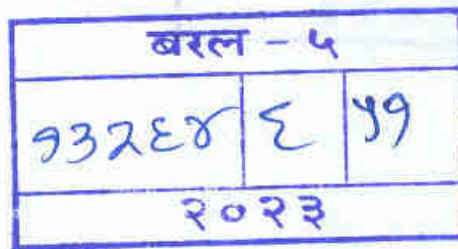 बरल - ५
१३२६४ ६ ५१
२०२३